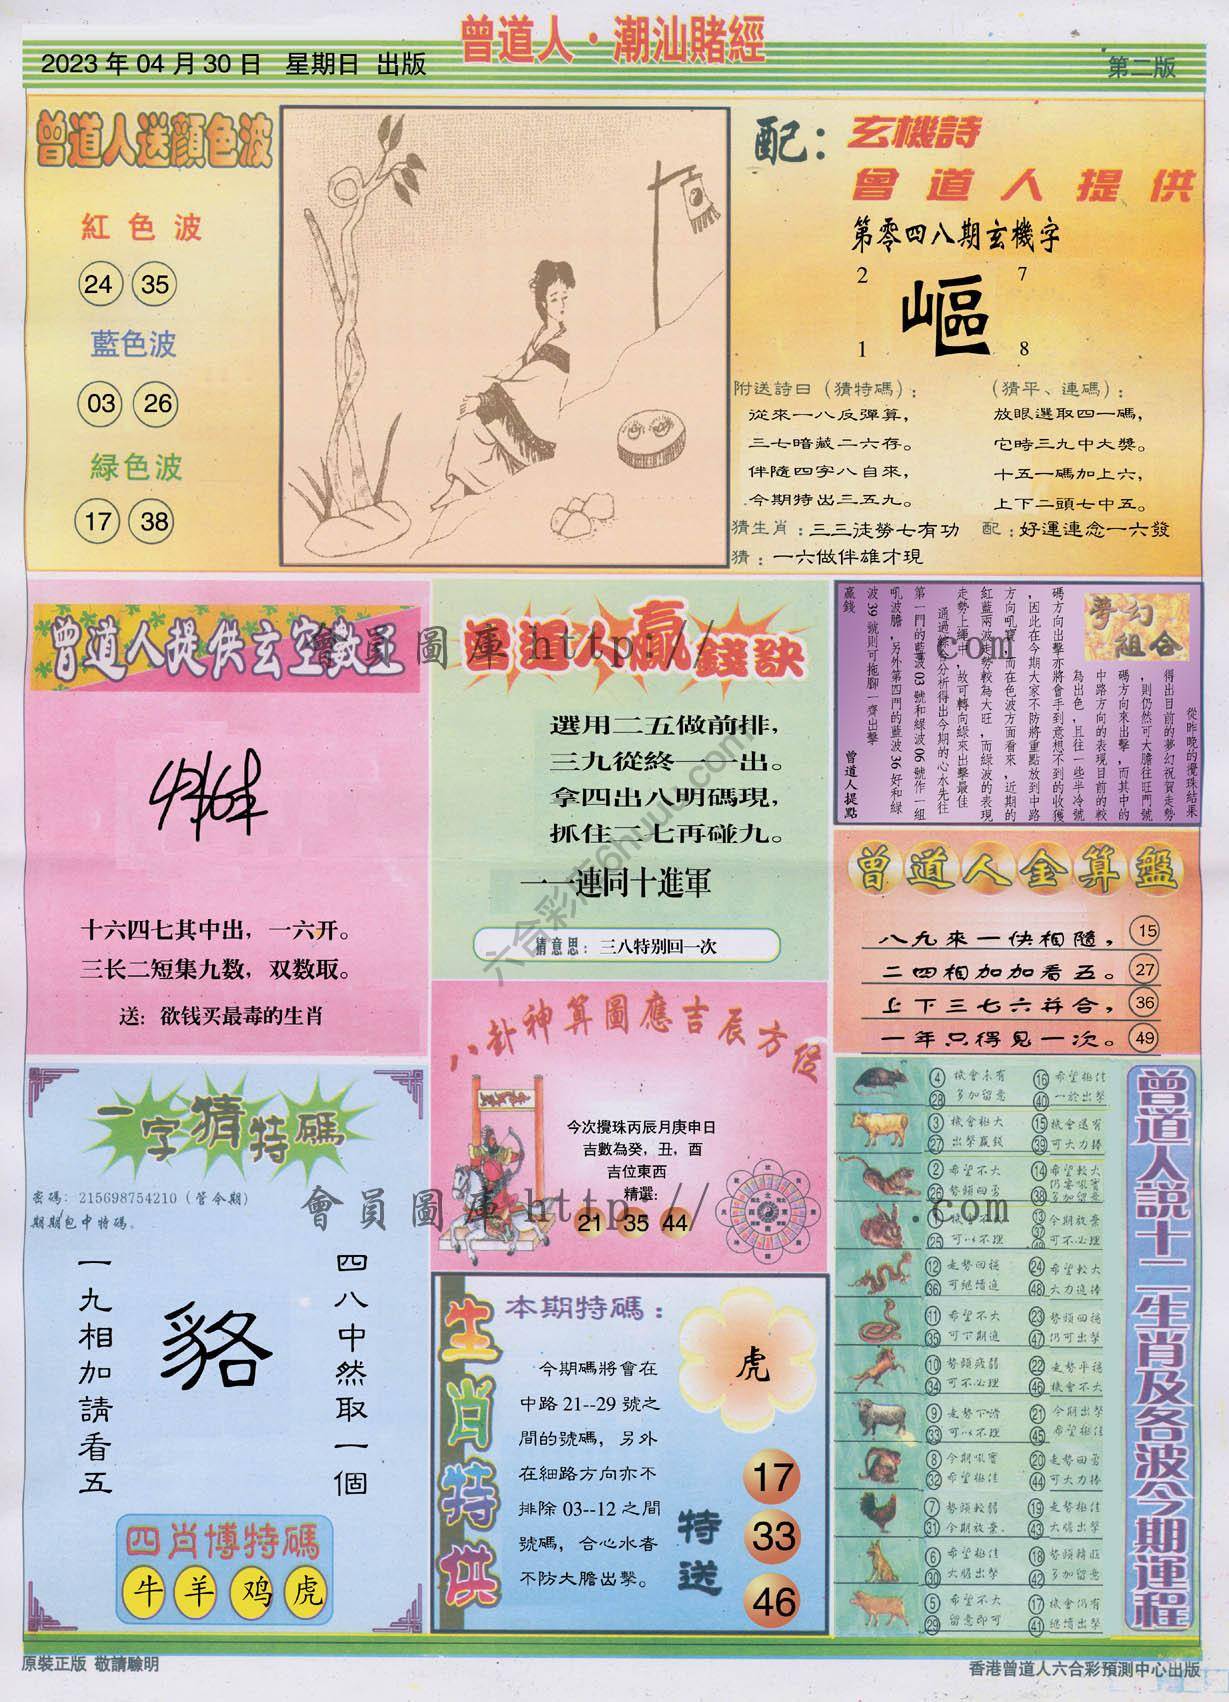 曾道人·潮汕賭經
2023 年 04 月 30 日 星期日 出版
第二版
曾道人送顔色波
紅色波
24 35
藍色波
03 26
緑色波
17 38
配：玄機詩
曾道人提供
第零四八期玄機字
2 7
嶇
1 8
附送詩曰（猜特碼）：
從來一八反彈算，
三七暗藏二六存。
伴隨四字八自來，
今期特出三五九。
（猜平、連碼）：
放眼選取四一碼，
它時三九中大獎。
十五一碼加上六，
上下二頭七中五。
猜生肖：三三徒勞七有功
配：好運連念一六發
猜：一六做伴雄才現
曾道人提供玄空數王
十六四七其中出，一六开。
三长二短集九数，双数取。
送：欲钱买最毒的生肖
曾道人贏錢訣
選用二五做前排，
三九從終一一出。
拿四出八明碼現，
抓住二七再碰九。
一一連同十進軍
猜意思：三八特别回一次
夢幻組合
從昨晚的攪珠結果
得出目前的夢幻祝賀走勢
，則仍然可大膽往旺門號
碼方向來出擊，而其中的
中路方向的表現目前的較
為出色，且往一些半冷號
碼方向出擊亦將會手到意想不到的收獲
，因此在今期大家不防將重點放到中路
方向吼寶，而在色波方面看來，近期的
紅藍兩波走勢較為大旺，而綠波的表現
走勢上繩中，故可轉向綠來出擊最佳
通過綜合分析得出今期的心水先往
第一門的藍波 03 號和綠波 06 號作一組
吼波膽，另外第四門的藍波 36 好和綠
波 39 號則可拖腳一齊出擊
贏錢
曾道人提點
曾道人金算盤
八九來一伏相隨， 15
二四相加加看五。 27
上下三七六并合， 36
一年只得見一次。 49
八卦神算圖應吉辰方位
今次攪珠丙辰月庚申日
吉數為癸，丑，酉
吉位東西
精選：
21 35 44
一字猜特碼
密碼：215698754210（管今期）
期期包中特碼。
四八中然取一個
貉
一九相加請看五
四肖博特碼
牛 羊 鸡 虎
生肖特供
本期特碼：
虎
今期碼將會在
中路 21--29 號之
間的號碼，另外
在細路方向亦不
排除 03--12 之間
號碼，合心水者
不防大膽出擊。
特送
17
33
46
曾道人説十二生肖及各波今期運程
4 28 機會未有 多加留意
16 40 希望極佳 一於出擊
3 27 機會極大 出擊贏錢
15 39 機會還有 可大力捧
2 26 希望不大 勢頭回勇
14 38 希望較大 仍要吼實 多加留意
1 25 機會不大 可以不理
13 37 49 今期放棄 可不必理
12 36 走勢回穩 可繼續追
24 48 希望較大 大力追捧
11 35 希望不大 可下期追
23 47 勢頭回穩 仍可出擊
10 34 勢頭疲弱 可不必理
22 46 走勢平穩 機會不大
9 33 走勢下滑 可以不理
21 45 今期出擊 希望極佳
8 32 今期吼實 希望極佳
20 44 走勢回勇 可大力捧
7 31 勢頭較弱 今期放棄.
19 43 走勢極佳 大膽出擊
6 30 希望極佳 大膽出擊
18 42 勢頭轉旺 多加留意
5 29 希望不大 留意即可
17 41 機會仍有 繼續出擊
會員圖庫 http:// .com
會員圖庫 http:// .com
原裝正版 敬請驗明
香港曾道人六合彩預測中心出版